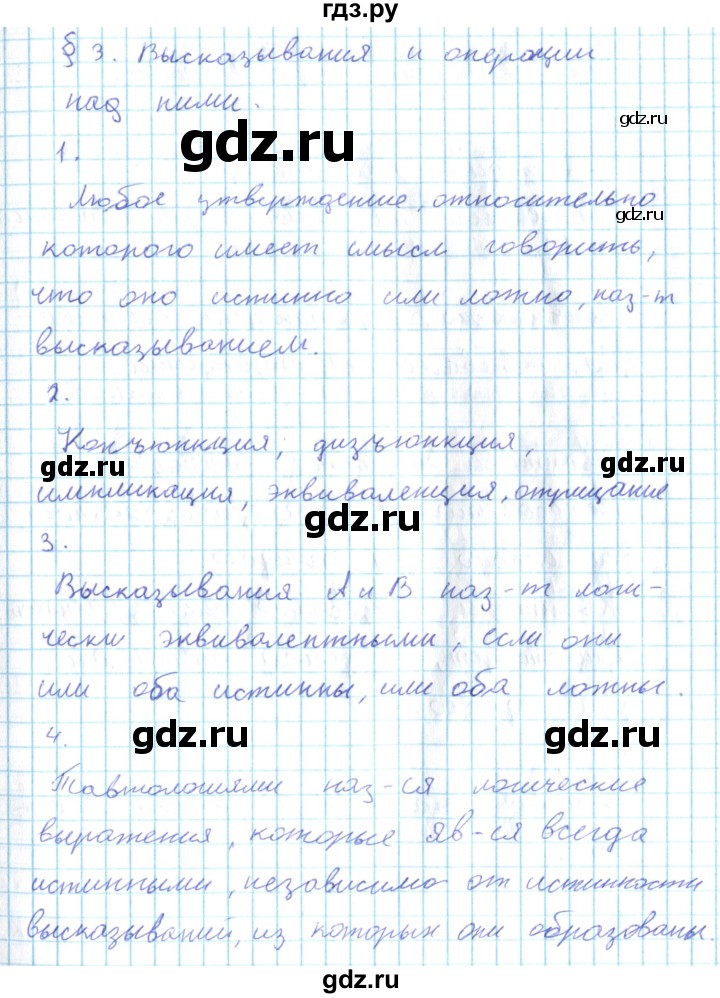 гдз.ру
§ 3. Высказывания и операции
над ними.
gdz.ru
gdz.ru
1.
Любое утверждение, относительно
gdz.ru
которого имеет смысл говорить,
что оно истинно или ложно, наз-т
высказыванием.
2.
Конъюнкция, дизъюнкция,
gdz.ru
gdz.ru
импликация, эквиваленция, отрицание
gdz.ru
3.
Высказывания A и B наз-т логи-
чески эквивалентными, если они
или оба истинны, или оба ложны.
4.
gdz.ru
gdz.ru
Тавтологиями наз-ся логические
выражения, которые яв-ся всегда
истинными, независимо от истинности
высказываний, из которых они образованы.
gdz.ru
gdz.ru